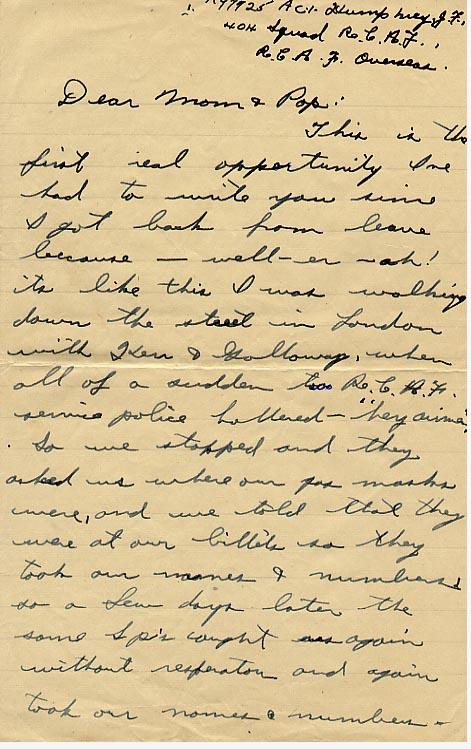 R79925 AC1. Humphrey, J.F.,
404 Squad R.C.A.F.,
R.C.A.F. Overseas.
Dear Mom & Pop:
This is the
first real opportunity I've
had to write you since
I got back from leave
because — well-er -ah!
its like this I was walking
down the steet in London
with Ken & Galloway, when
all of a sudden too R.C.A.F.
service police hollered - "hey airmen
. So we stopped and they
asked us where our gas masks
were, and we told that they
were at our billets so they
took our names & numbers
so a few days later the
same Sp's caught us again
without respirators and again
took our names & numbers -